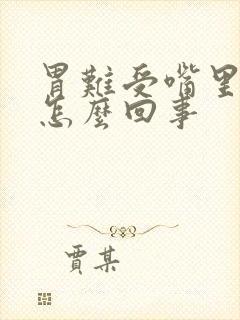 胃難受嘴里
怎麼回事
賈某